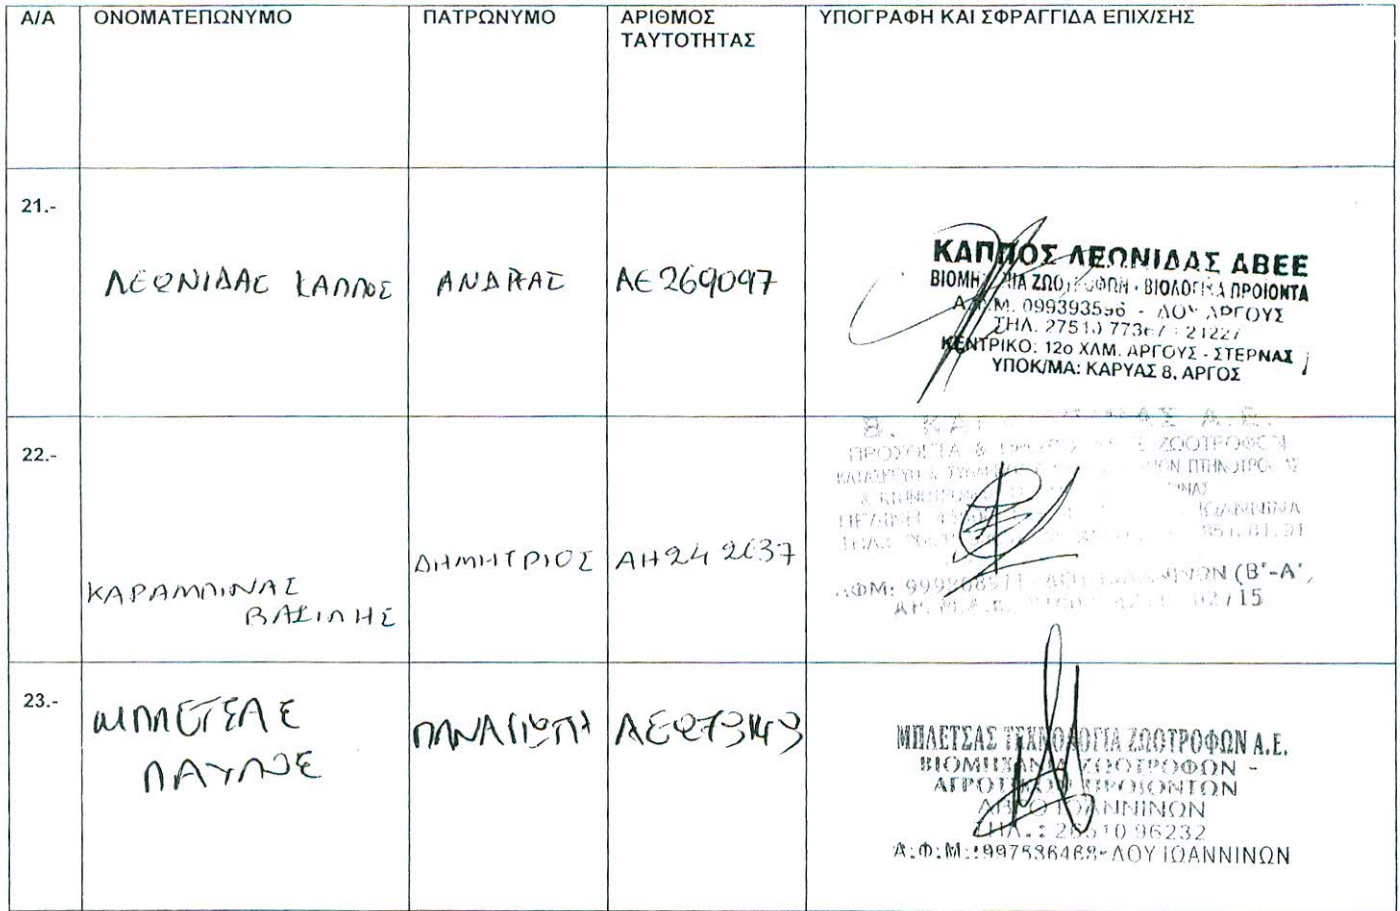 Α/Α ΟΝΟΜΑΤΕΠΩΝΥΜΟ ΠΑΤΡΩΝΥΜΟ ΑΡΙΘΜΟΣ ΤΑΥΤΟΤΗΤΑΣ ΥΠΟΓΡΑΦΗ ΚΑΙ ΣΦΡΑΓΓΙΔΑ ΕΠΙΧ/ΣΗΣ
21.-
ΛΕΩΝΙΔΑΣ ΚΑΠΠΟΣ
ΑΝΔΡΕΑΣ
ΑΕ 269097
ΚΑΠΠΟΣ ΛΕΩΝΙΔΑΣ ΑΒΕΕ
ΒΙΟΜΗΧΑΝΙΑ ΖΩΟΤΡΟΦΩΝ - ΒΙΟΛΟΓΙΚΑ ΠΡΟΙΟΝΤΑ
Α.Φ.Μ. 099393596 - ΔΟΥ ΑΡΓΟΥΣ
ΤΗΛ. 27510 77367 - 21227
ΚΕΝΤΡΙΚΟ: 12ο ΧΛΜ. ΑΡΓΟΥΣ - ΣΤΕΡΝΑΣ
ΥΠΟΚ/ΜΑ: ΚΑΡΥΑΣ 8, ΑΡΓΟΣ
22.-
ΚΑΡΑΜΠΙΝΑΣ
ΒΑΣΙΛΗΣ
ΔΗΜΗΤΡΙΟΣ
ΑΗ24 2637
Α.Ε.
ΖΩΟΤΡΟΦΩΝ
ΙΩΑΝΝΙΝΑ
ΑΦΜ: (Β'-Α',
02 / 15
23.-
ΜΠΛΕΤΣΑΣ
ΠΑΥΛΟΣ
ΑΕ273143
ΜΠΛΕΤΣΑΣ ΤΕΧΝΟΛΟΓΙΑ ΖΩΟΤΡΟΦΩΝ Α.Ε.
ΒΙΟΜΗΧΑΝΙΑ ΖΩΟΤΡΟΦΩΝ -
ΑΓΡΟΤΙΚΩΝ ΠΡΟΙΟΝΤΩΝ
ΙΩΑΝΝΙΝΩΝ
ΤΗΛ.: 26510 96232
Α.Φ.Μ.:997536468-ΔΟΥ ΙΩΑΝΝΙΝΩΝ